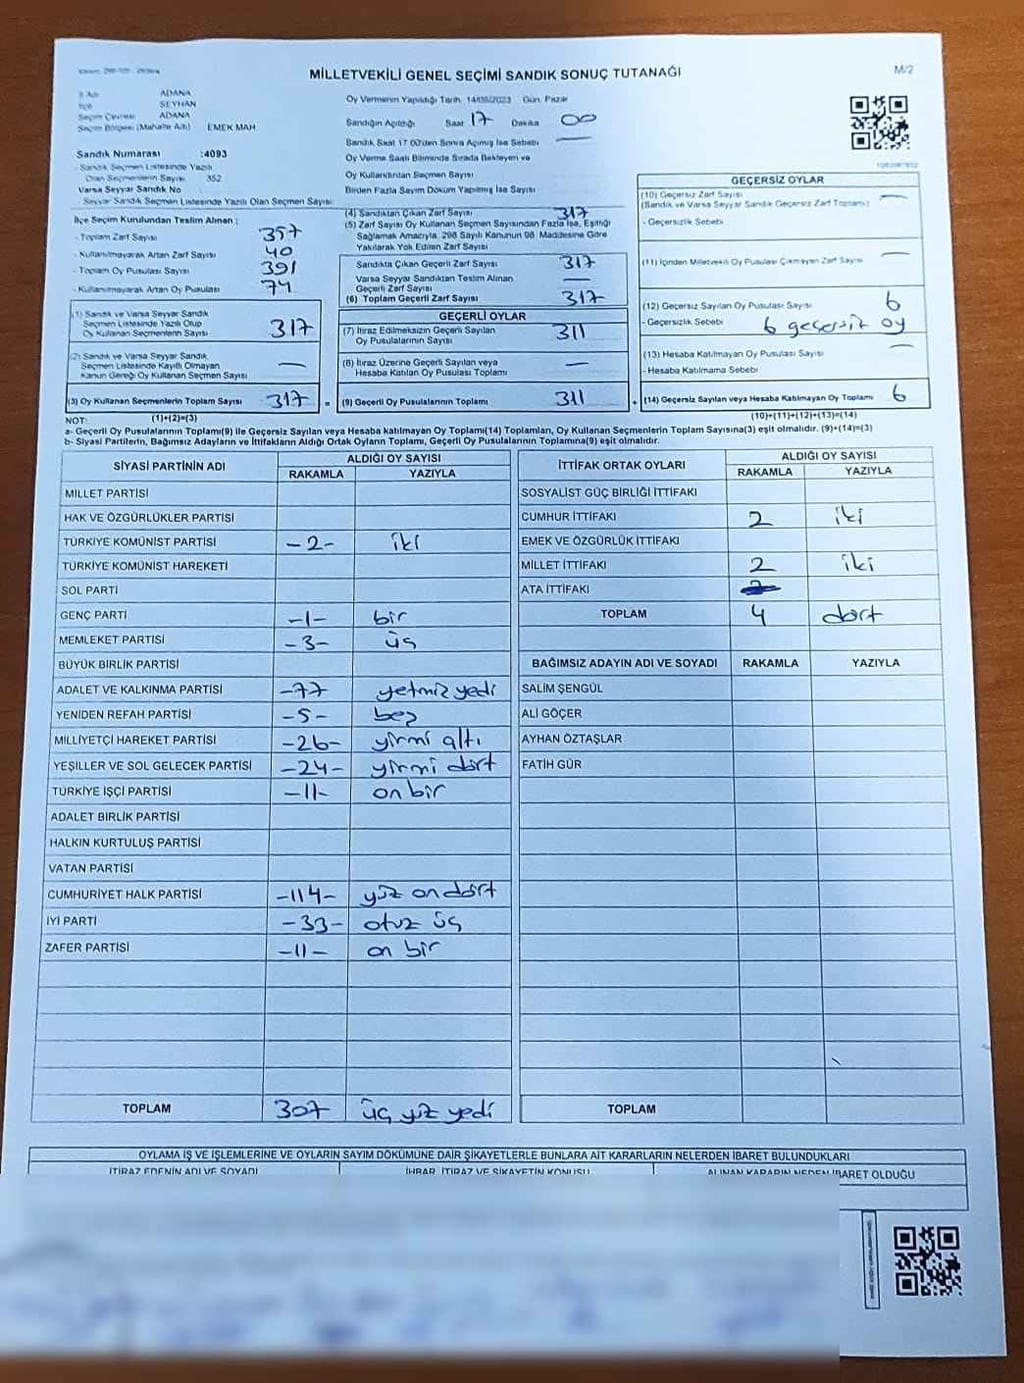 MİLLETVEKİLİ GENEL SEÇİMİ SANDIK SONUÇ TUTANAĞI
M/2
İl Adı ADANA
İlçe SEYHAN
Seçim Çevresi ADANA
Seçim Bölgesi (Mahalle Adı) EMEK MAH
Sandık Numarası :4093
Sandık Seçmen Listesinde Yazılı
Olan Seçmenlerin Sayısı 352
Varsa Seyyar Sandık No
Seyyar Sandık Seçmen Listesinde Yazılı Olan Seçmen Sayısı
Oy Vermenin Yapıldığı Tarih 14/05/2023 Gün Pazar
Sandığın Açıldığı Saat 17 Dakika 00
Sandık Saat 17 00'den Sonra Açılmış İse Sebebi —
Oy Verme Saati Bitiminde Sırada Bekleyen ve
Oy Kullandırılan Seçmen Sayısı
Birden Fazla Sayım Döküm Yapılmış İse Sayısı
İlçe Seçim Kurulundan Teslim Alınan :
- Toplam Zarf Sayısı 357
- Kullanılmayarak Artan Zarf Sayısı 40
- Toplam Oy Pusulası Sayısı 391
- Kullanılmayarak Artan Oy Pusulası 74
(1) Sandık ve Varsa Seyyar Sandık
Seçmen Listesinde Yazılı Olup
Oy Kullanan Seçmenlerin Sayısı 317
(2) Sandık ve Varsa Seyyar Sandık
Seçmen Listesinde Kayıtlı Olmayan
Kanun Gereği Oy Kullanan Seçmen Sayısı —
(3) Oy Kullanan Seçmenlerin Toplam Sayısı 317 =
(1)+(2)=(3)
(4) Sandıktan Çıkan Zarf Sayısı 317
(5) Zarf Sayısı Oy Kullanan Seçmen Sayısından Fazla İse, Eşitliği
Sağlamak Amacıyla, 298 Sayılı Kanunun 98. Maddesine Göre
Yakılarak Yok Edilen Zarf Sayısı
Sandıkta Çıkan Geçerli Zarf Sayısı 317
Varsa Seyyar Sandıktan Teslim Alınan
Geçerli Zarf Sayısı —
(6) Toplam Geçerli Zarf Sayısı 317
GEÇERLİ OYLAR
(7) İtiraz Edilmeksizin Geçerli Sayılan
Oy Pusulalarının Sayısı 311
(8) İtiraz Üzerine Geçerli Sayılan veya
Hesaba Katılan Oy Pusulası Toplamı —
(9) Geçerli Oy Pusulalarının Toplamı 311 +
GEÇERSİZ OYLAR
(10) Geçersiz Zarf Sayısı
(Sandık ve Varsa Seyyar Sandık Geçersiz Zarf Toplamı) —
- Geçersizlik Sebebi
(11) İçinden Milletvekili Oy Pusulası Çıkmayan Zarf Sayısı —
(12) Geçersiz Sayılan Oy Pusulası Sayısı 6
- Geçersizlik Sebebi 6 geçersiz oy
(13) Hesaba Katılmayan Oy Pusulası Sayısı —
- Hesaba Katılmama Sebebi
(14) Geçersiz Sayılan veya Hesaba Katılmayan Oy Toplamı 6
(10)+(11)+(12)+(13)=(14)
NOT:
a- Geçerli Oy Pusulalarının Toplamı(9) ile Geçersiz Sayılan veya Hesaba katılmayan Oy Toplamı(14) Toplamları, Oy Kullanan Seçmenlerin Toplam Sayısına(3) eşit olmalıdır. (9)+(14)=(3)
b- Siyasi Partilerin, Bağımsız Adayların ve İttifakların Aldığı Ortak Oyların Toplamı, Geçerli Oy Pusulalarının Toplamına(9) eşit olmalıdır.
SİYASİ PARTİNİN ADI ALDIĞI OY SAYISI
RAKAMLA YAZIYLA
MİLLET PARTİSİ
HAK VE ÖZGÜRLÜKLER PARTİSİ
TÜRKİYE KOMÜNİST PARTİSİ -2- iki
TÜRKİYE KOMÜNİST HAREKETİ
SOL PARTİ
GENÇ PARTİ -1- bir
MEMLEKET PARTİSİ -3- üç
BÜYÜK BİRLİK PARTİSİ
ADALET VE KALKINMA PARTİSİ -77 yetmiş yedi
YENİDEN REFAH PARTİSİ -5- beş
MİLLİYETÇİ HAREKET PARTİSİ -26- yirmi altı
YEŞİLLER VE SOL GELECEK PARTİSİ -24- yirmi dört
TÜRKİYE İŞÇİ PARTİSİ -11- on bir
ADALET BİRLİK PARTİSİ
HALKIN KURTULUŞ PARTİSİ
VATAN PARTİSİ
CUMHURİYET HALK PARTİSİ -114- yüz on dört
İYİ PARTİ -33- otuz üç
ZAFER PARTİSİ -11- on bir
TOPLAM 307 üç yüz yedi
İTTİFAK ORTAK OYLARI ALDIĞI OY SAYISI
RAKAMLA YAZIYLA
SOSYALİST GÜÇ BİRLİĞİ İTTİFAKI
CUMHUR İTTİFAKI 2 iki
EMEK VE ÖZGÜRLÜK İTTİFAKI
MİLLET İTTİFAKI 2 iki
ATA İTTİFAKI
TOPLAM 4 dört
BAĞIMSIZ ADAYIN ADI VE SOYADI RAKAMLA YAZIYLA
SALİM ŞENGÜL
ALİ GÖÇER
AYHAN ÖZTAŞLAR
FATİH GÜR
TOPLAM
OYLAMA İŞ VE İŞLEMLERİNE VE OYLARIN SAYIM DÖKÜMÜNE DAİR ŞİKAYETLERLE BUNLARA AİT KARARLARIN NELERDEN İBARET BULUNDUKLARI
İTİRAZ EDENİN ADI VE SOYADI İHBAR, İTİRAZ VE ŞİKAYETİN KONUSU ALINAN KARARIN NEDEN İBARET OLDUĞU